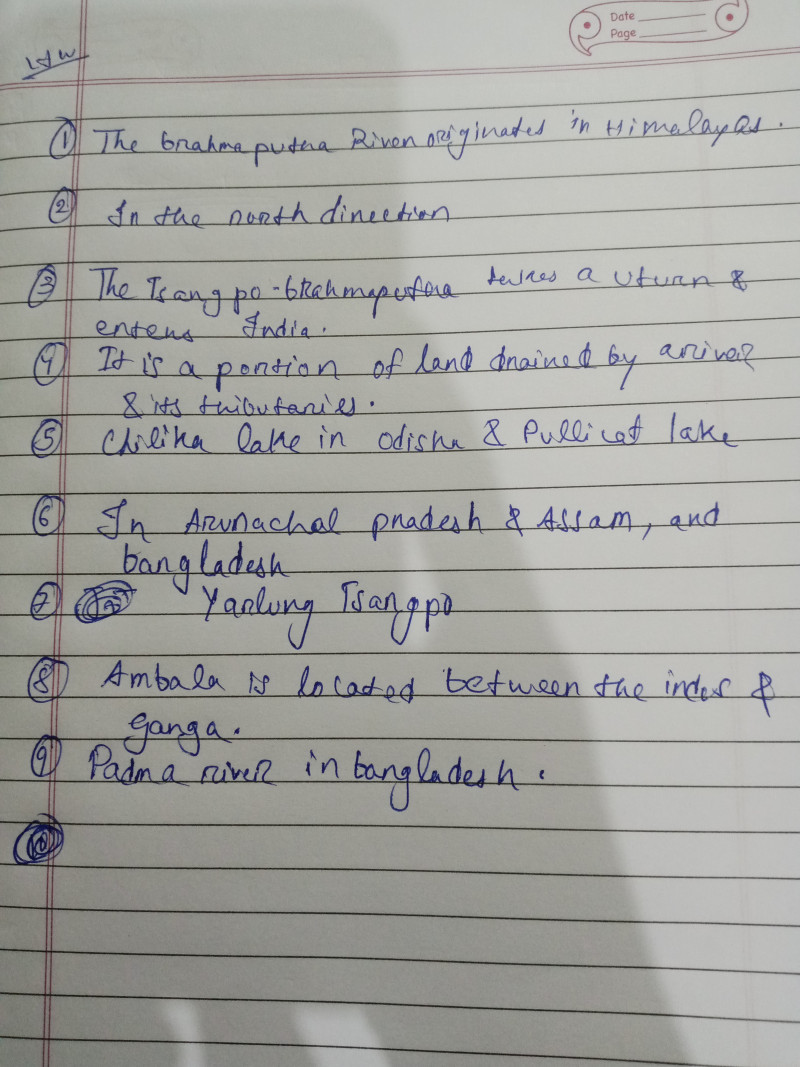 Date
Page
H/W
① The brahmaputra River originates in Himalayas.
② In the north direction
③ The Tsangpo-brahmaputra takes a uturn &
enters India.
④ It is a portion of land drained by a river
& its tributaries.
⑤ Chilika lake in odisha & Pullicat lake
⑥ In Arunachal pradesh & Assam, and
bangladesh
⑦ Yarlung Tsangpo
⑧ Ambala is located between the indus &
ganga.
⑨ Padma river in bangladesh.
⑩